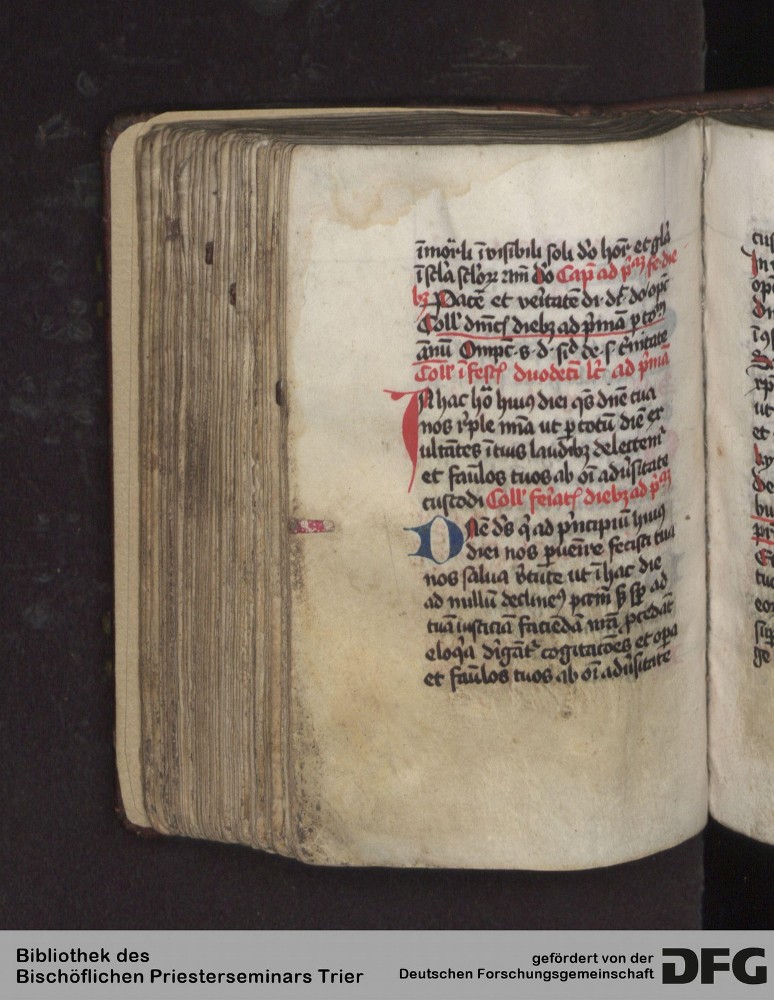 īmortli īvisibili soli dō hor̄ et glā
ī sclā sclo2 am̄ dō Cap̄ ad p̄ꝫ fe die
bꝫ Pacē et veritatē di dt̄ dō opt
Coll' dnīcꝭ diebꝫ ad p̄mā p totū
annū Omp̄c s d sið de s t̄nitate
Coll' ī festꝭ duodecī lc̄ ad p̄mā
In hac hō huiꝰ diei qs̄ dnē tua
nos rͥple mīa ut p totū diē ex
ultātes ī tuis laudibꝫ delectemͬ
et faūlos tuos ab oī adūsitate
custodi Coll' feriatꝭ diebꝫ ad p̄ꝫ
Dnē ds̄ qͥ ad pͥncipiū huiꝰ
diei nos puenīre fecisti tua
nos salua v̄tute ut ī hac die
ad nullū declinemꝰ pctm̄ sꝫ sp̄ ad
tuā iusticiā faciēdā nr̄a pcedāt
eloqͥa diͥgātͬ cogitacōes et opa
et faūlos tuos ab oī adūsitate
Bibliothek des
Bischöflichen Priesterseminars Trier
gefördert von der
Deutschen Forschungsgemeinschaft
DFG